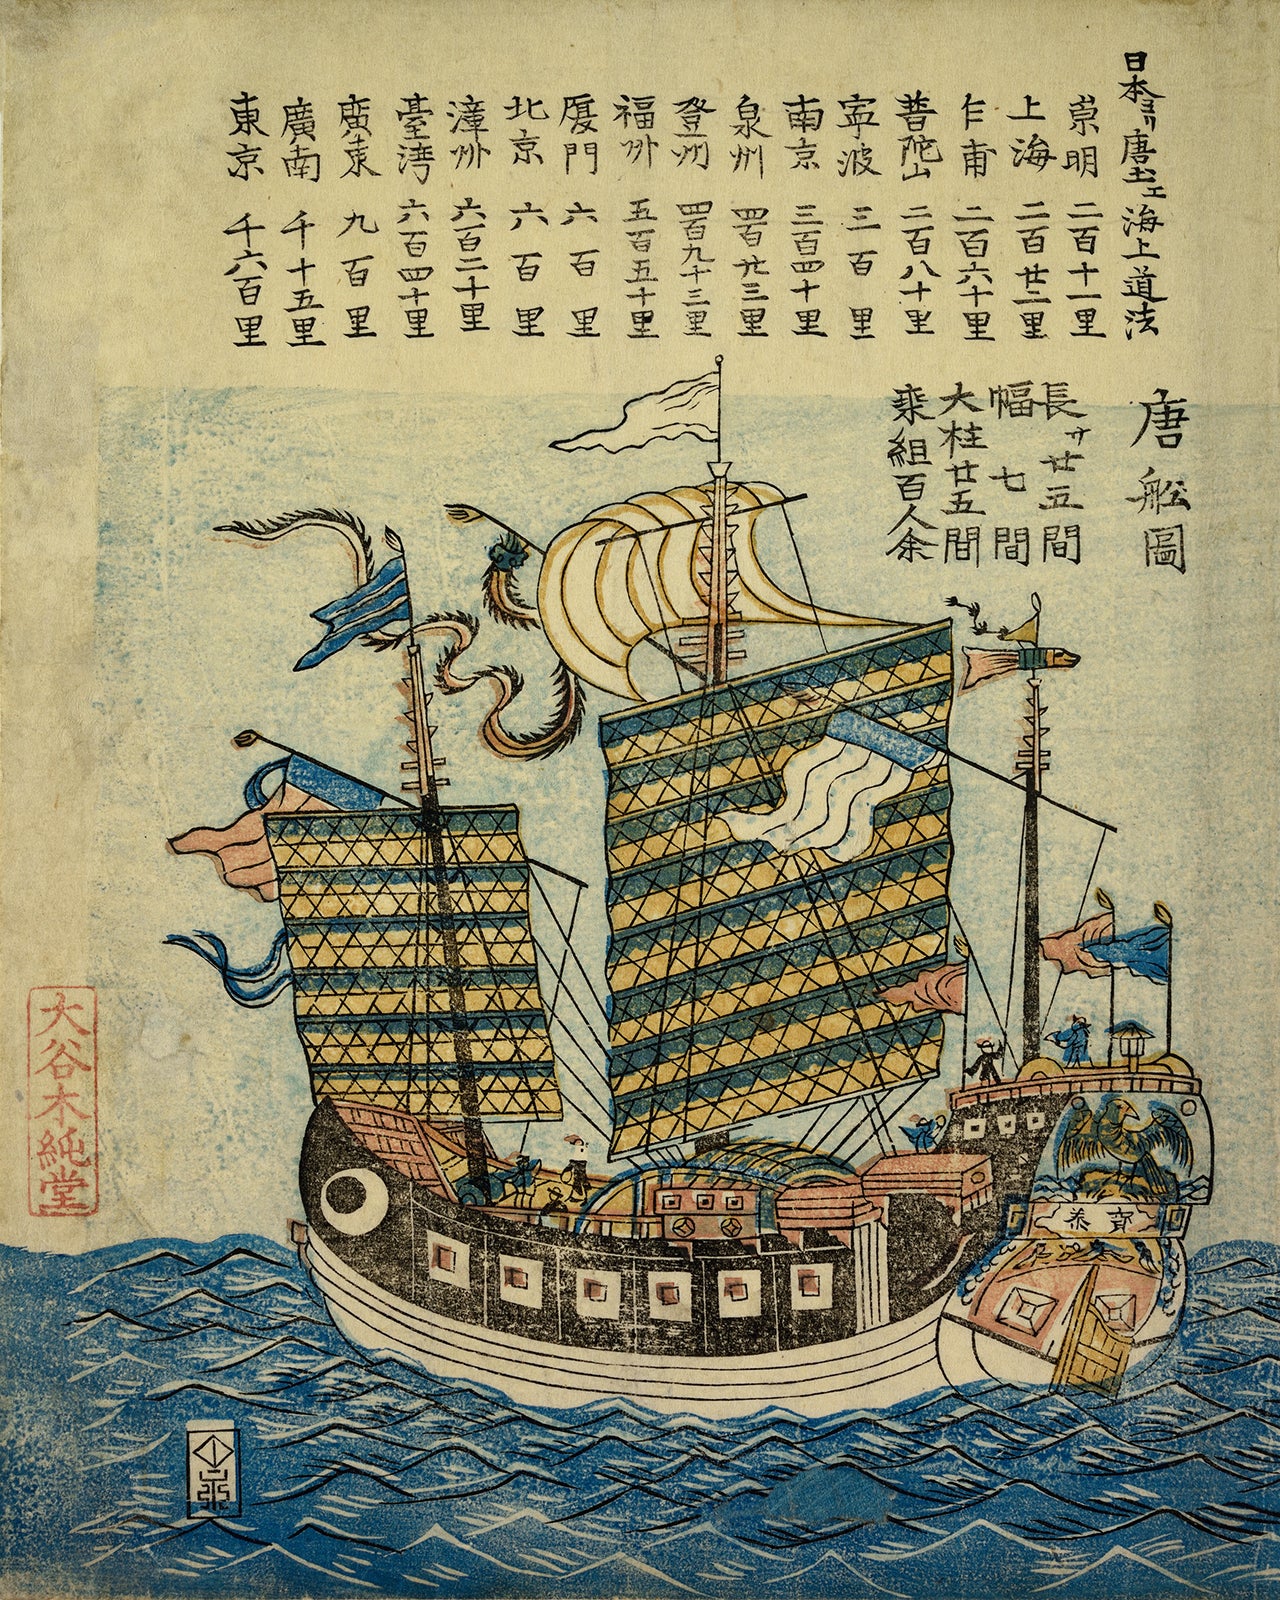 日本ヨリ唐土エ海上道法
崇明 二百十一里
上海 二百廿二里
乍甫 二百六十里
普陀山 二百八十里
寧波 三百里
南京 三百四十里
泉州 四百廿三里
登州 四百九十三里
福州 五百五十里
厦門 六百里
北京 六百里
漳州 六百二十里
臺湾 六百四十里
廣東 九百里
廣南 千十五里
東京 千六百里
唐舩圖
長サ廿五間
幅 七間
大柱廿五間
乗組百人余
賀恭
大谷木純堂